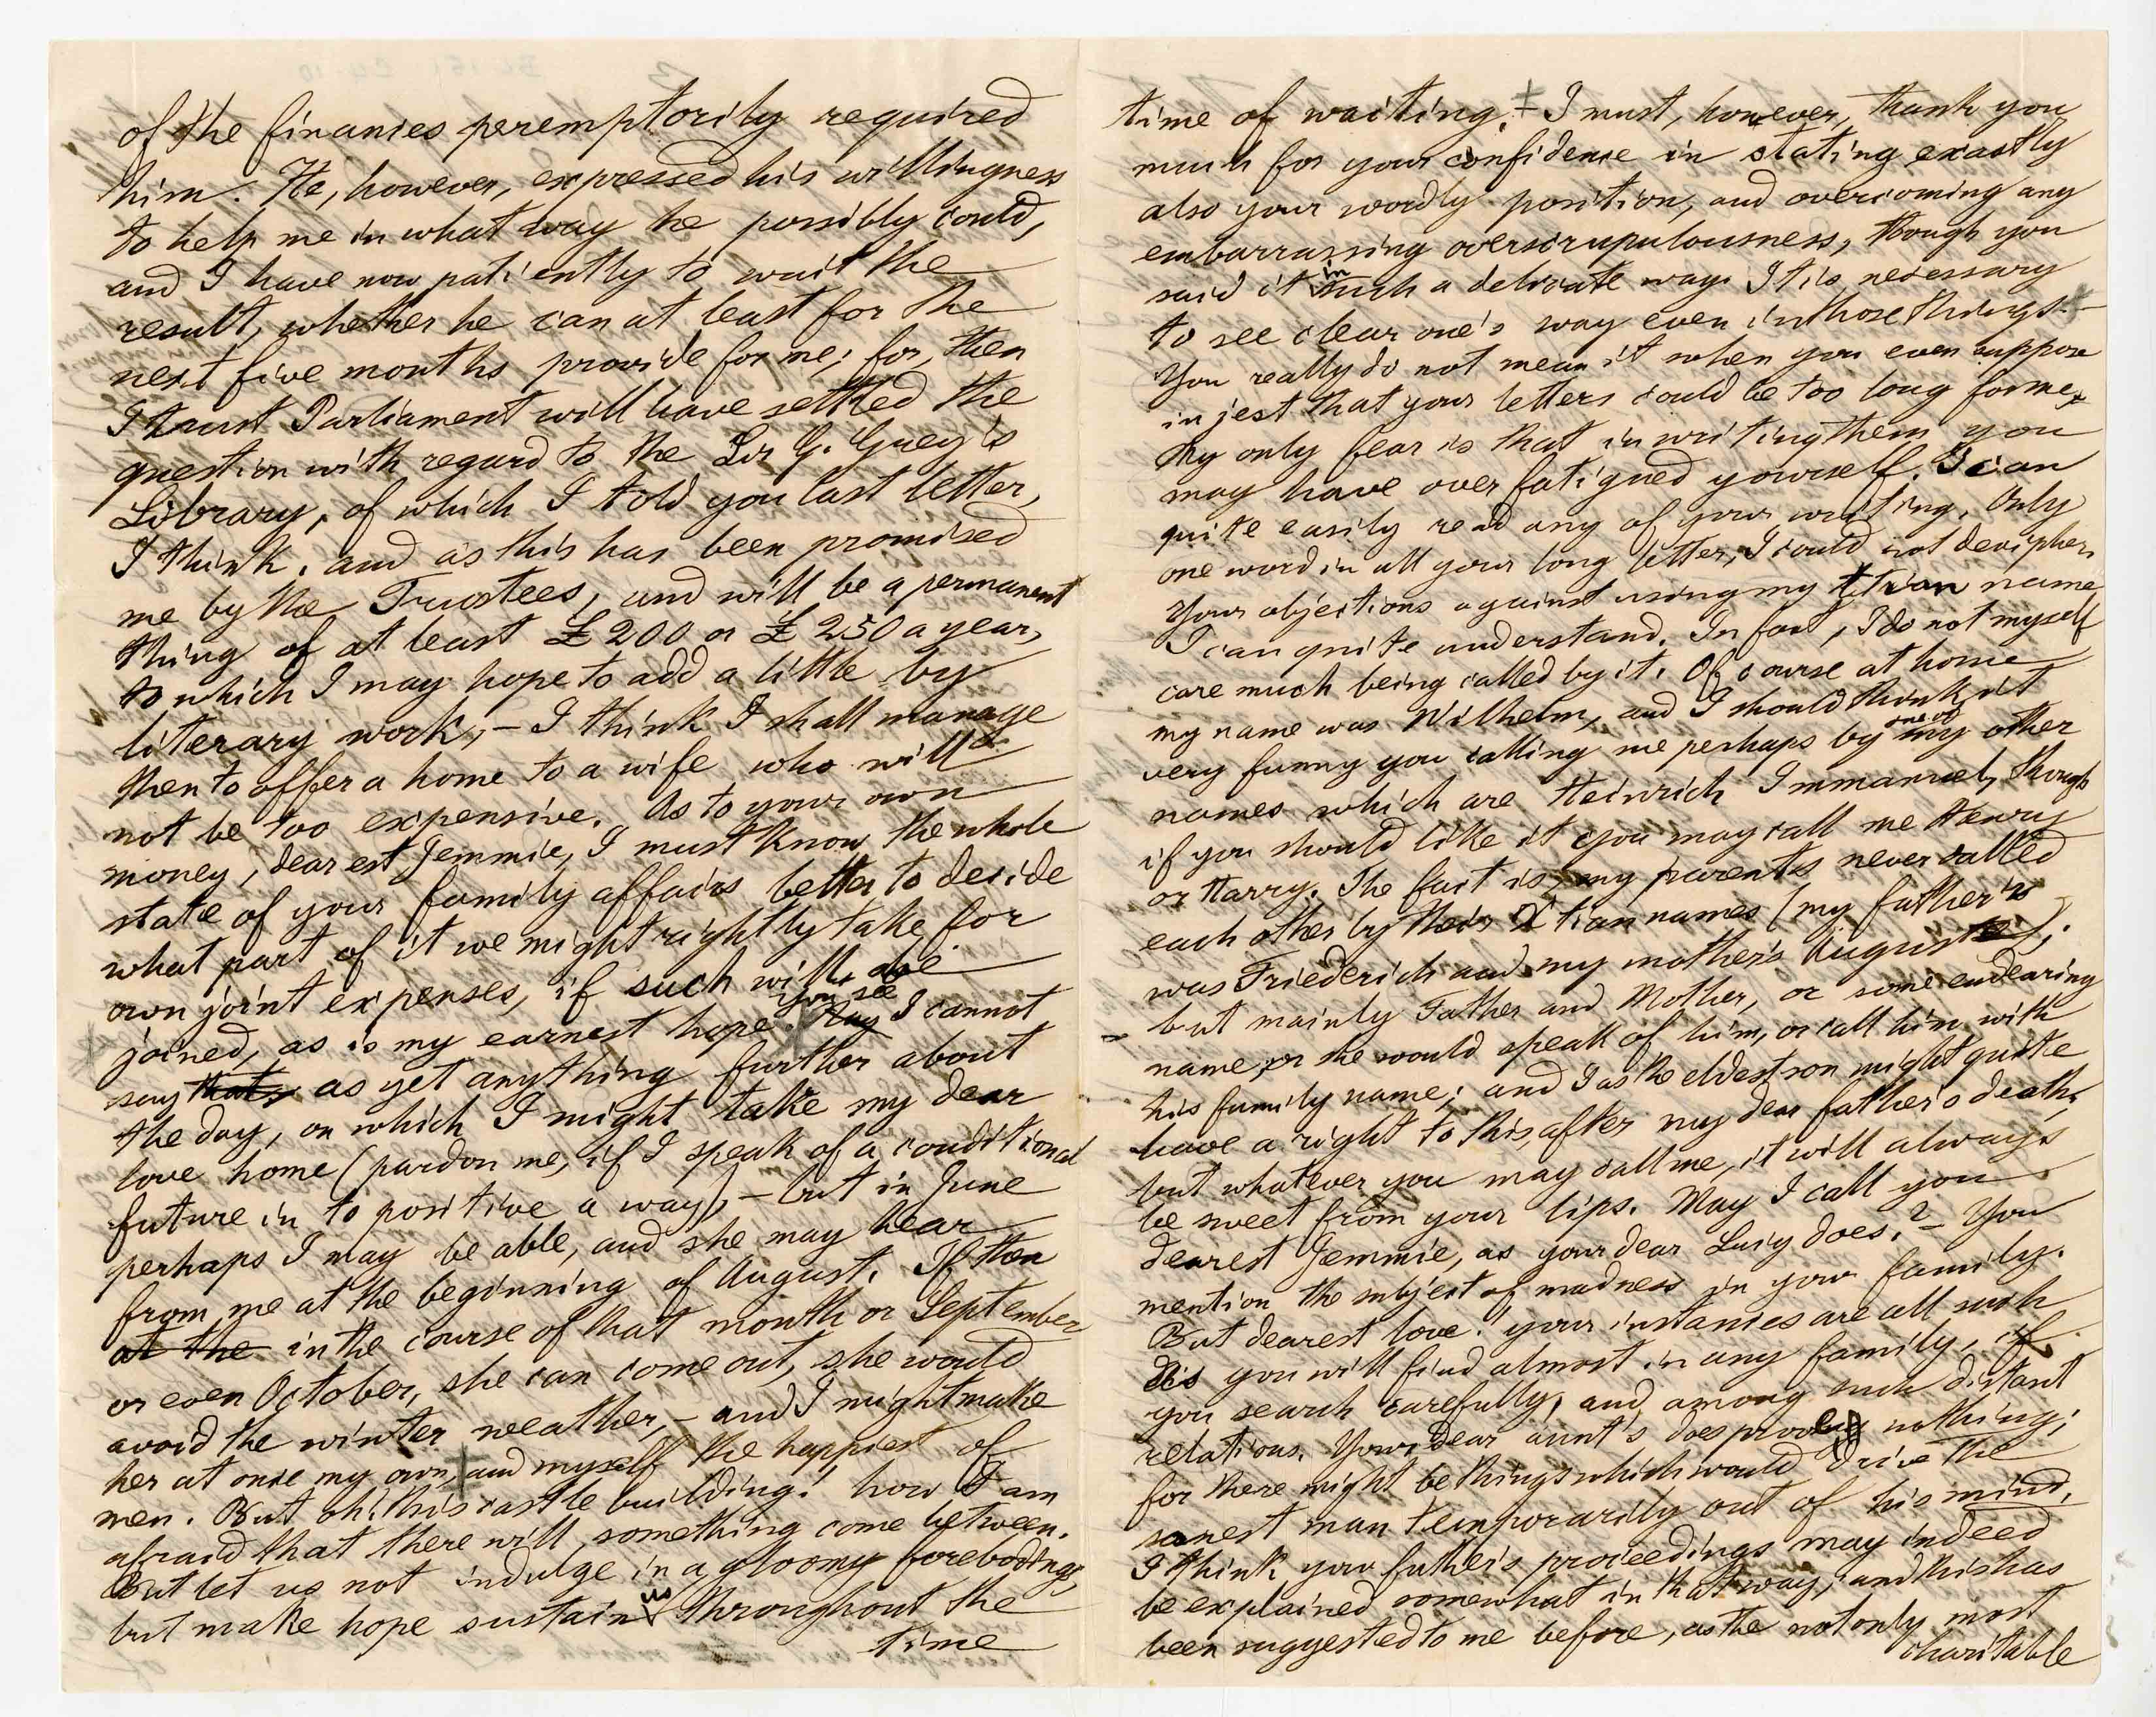 of the finances peremptorily required
him. He, however, expressed his willingness
to help me in what way he possibly could,
and I have now patiently to wait the
result, whether he can at least for the
next five months provide for me; for, then
I trust Parliament will have settled the
question with regard to the Sir G. Grey's
Library, of which I told you last letter,
I think. and as this has been promised
me by the Trustees, and will be a permanent
thing of at least £200 or £250 a year,
to which I may hope to add a little by
literary work, – I think I shall manage
then to offer a home to a wife who will
not be too expensive. As to your own
money, dearest Jemmie, I must know the whole
state of your family affairs better to decide
what part of it we might rightly take for
own joint expenses, if such will be
joined, as is my earnest hope. you see I cannot
say that, as yet anything further about
the day, on which I might take my dear
love home (pardon me, if I speak of a conditional
future in to positive a way), – but in June
perhaps I may be able, and she may hear
from me at the beginning of August. If then
at the in the course of that month or September
or even October, she can come out, she would
avoid the winter weather, – and I might make
her at once my own, and myself the happiest of
men. But oh! this castle building! how I am
afraid that there will something come between.
But let us not indulge in a gloomy forebodings,
but make hope sustain us throughout the
time
time of waiting. – I must, however, thank you
much for your confidence in stating exactly
also your wordly position, and overcoming any
embarrassing overscrupulousness, though you
said it in such a delicate way. It is necessary
to see clear one's way even in those things. –
You really do not mean it when you even suppose
in jest that your letters could be too long for me.
My only fear is that in writing them you
may have over fatigued yourself. I can
quite easily read any of your writing. Only
one word in all your long letter, I could not decipher.
Your objections against using my Xtian name
I can quite understand. In fact, I do not myself
care much being called by it. Of course at home
my name was Wilhelm, and I should think it
very funny you calling me perhaps by one of my other
names which are Heinrich Immanuel, though
if you should like it you may call me Henry
or Harry. The fact is, my parents never called
each other by their Xtian names (my father's
was Friederich and my mother's Auguste),
but mainly Father and Mother, or some endearing
name, or she would speak of him, or call him with
his family name; and I as the eldest son might quite
have a right to this, after my dear father's death,
but whatever you may call me, it will always
be sweet from your lips. May I call you
dearest Jemmie, as your dear Lucy does? – You
mention the subject of madness in your family.
But dearest love! your instances are all such
as you will find almost in any family, if
you search carefully, and among such distant
relations. Your dear aunt's does prove nothing;
for there might be things which would drive the
sanest man temporarily out of his mind.
I think your father's proceedings may indeed
be explained somewhat in that way, and this has
been suggested to me before, as the not only most
charitable